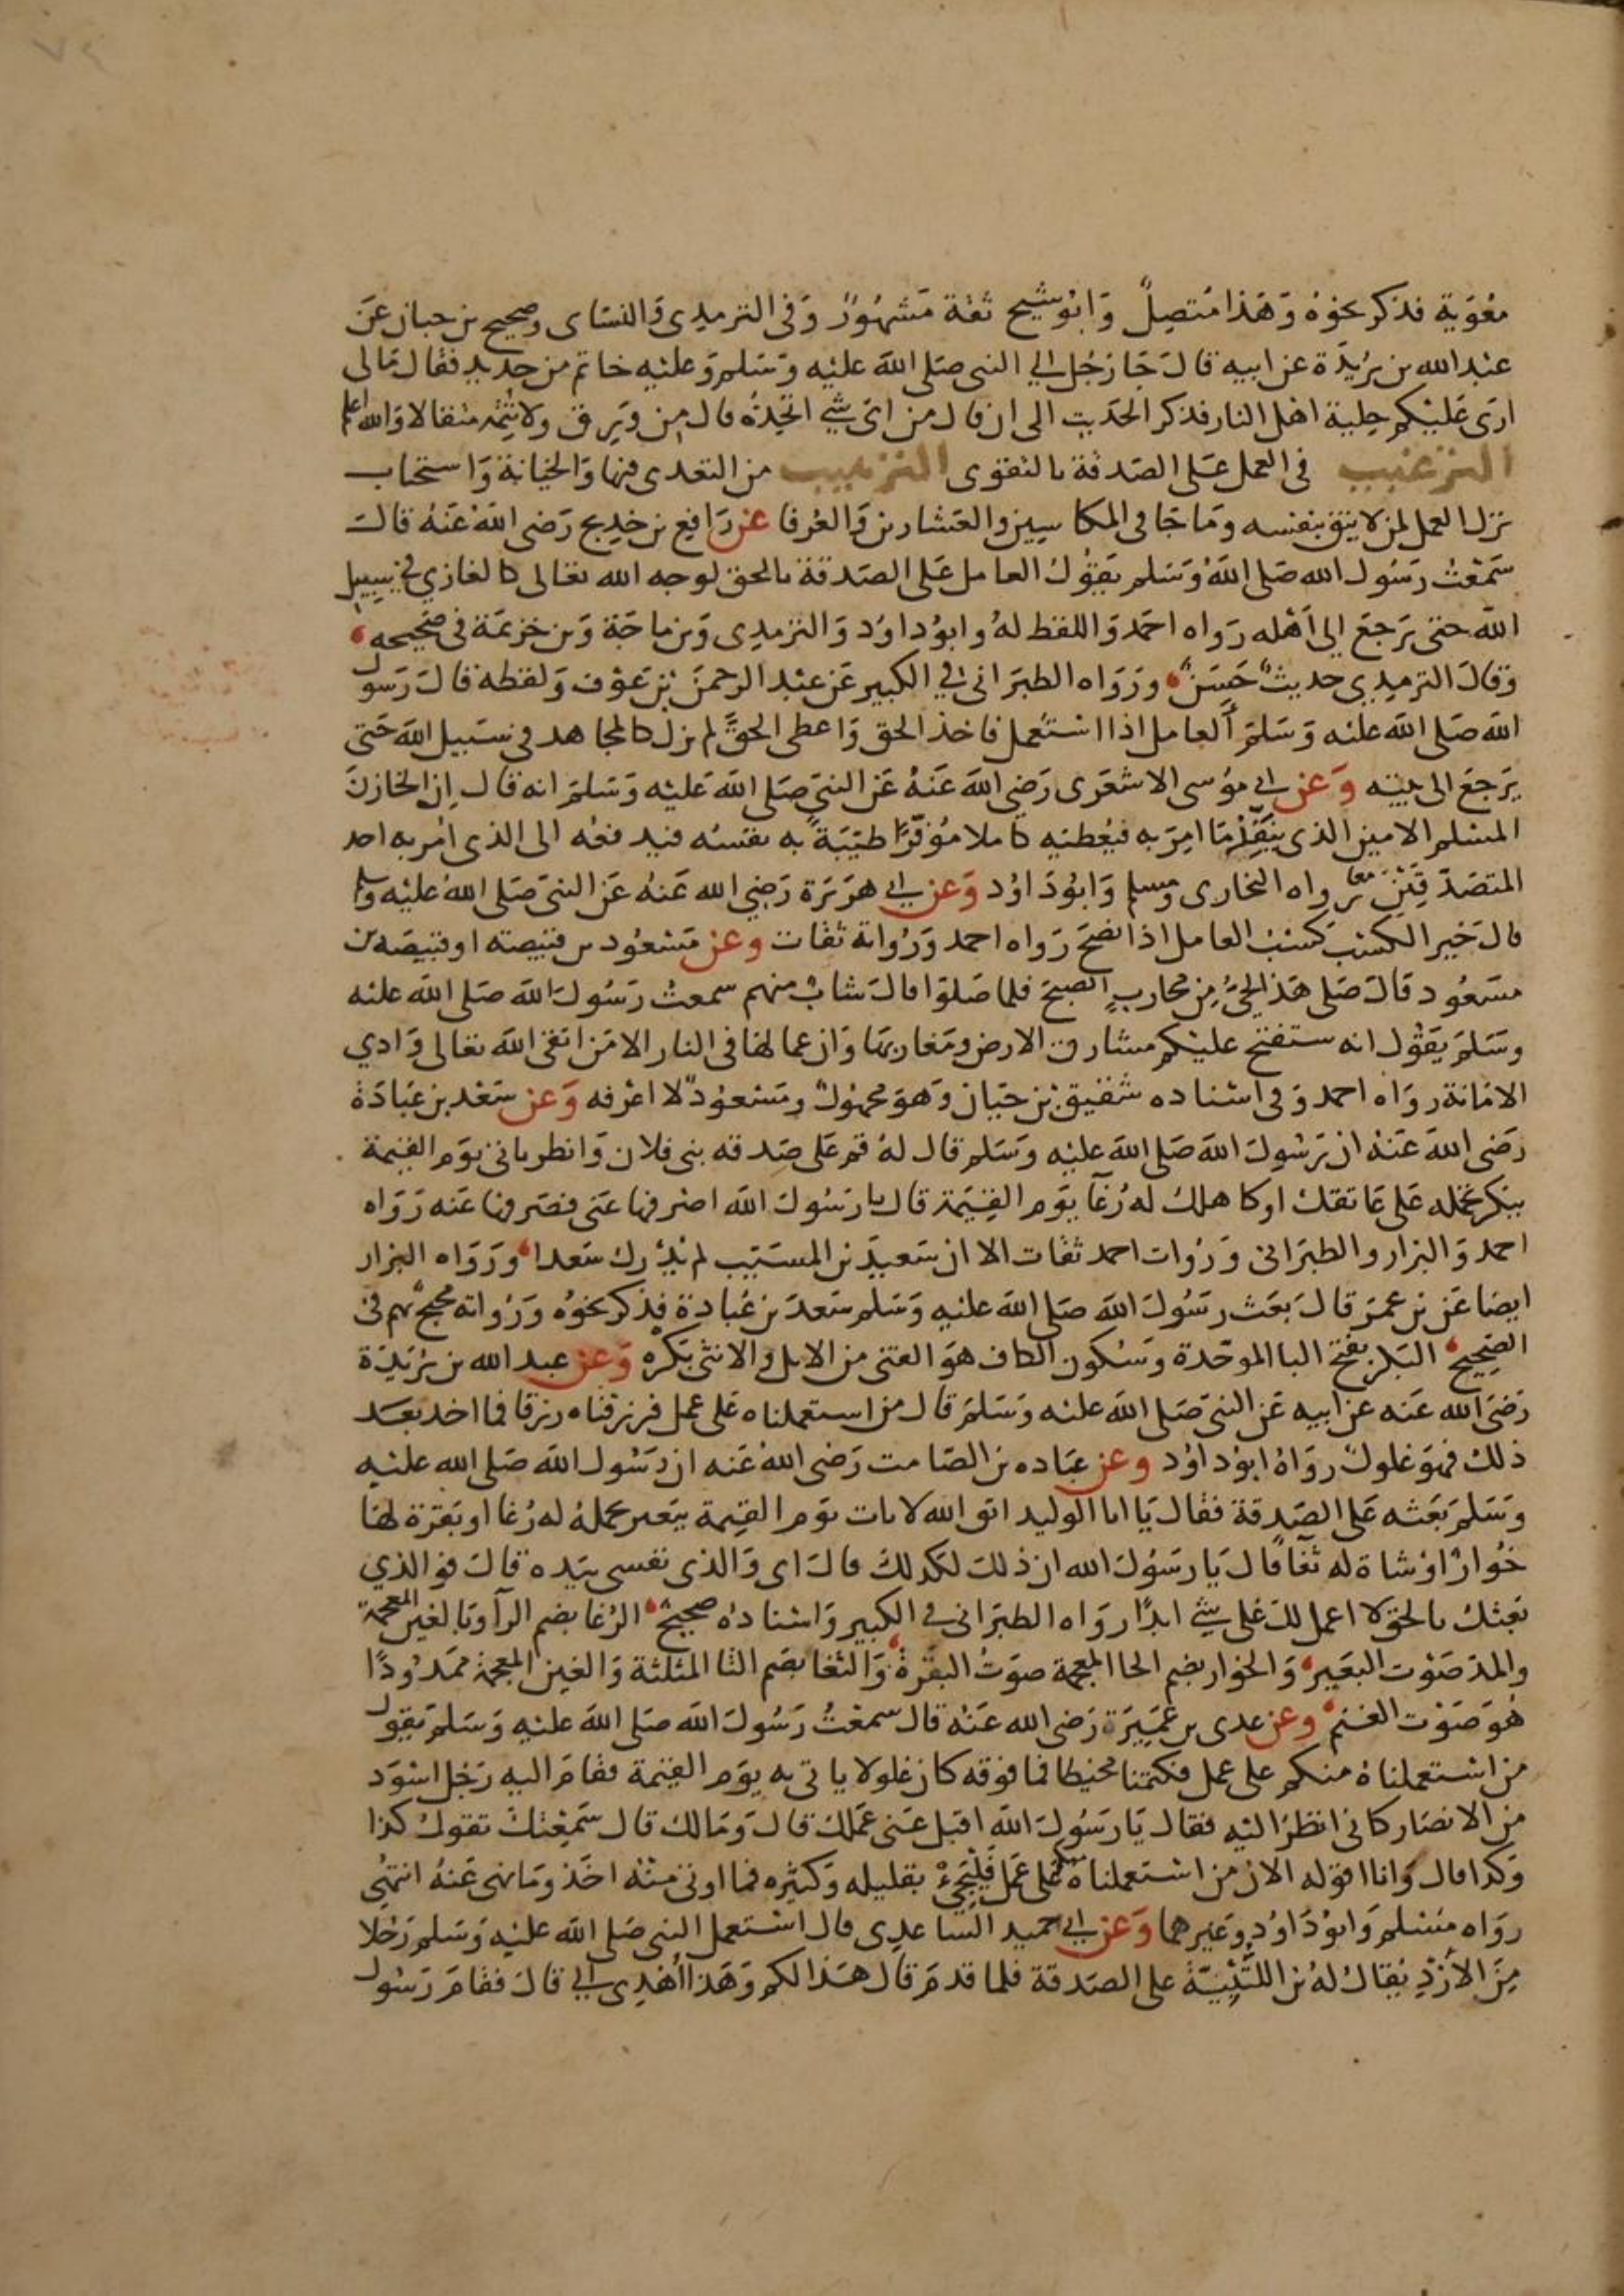 معوية فذكر نحوه وهذا متصل وابو شيخ ثقة مشهور وفى الترمدى والنساى وصحيح بن حبان عن
عبد الله بن بريدة عن ابيه قال جا رجل الي النبى صلى الله عليه وسلم وعليه خاتم من حديد فقال مالى
ارى عليكم حلية اهل النار فذكر الحديث الى ان قال من اى شي اتخذه قال من ورق ولا تتمه مثقالا والله اعلم
الترغيب فى العمل على الصدقة بالتقوى الترهيب من التعدى فيها والخيانة واستحباب
ترك العمل لمن لا يثق بنفسه وما جا فى المكاسين والعشارين والعرفا عن رافع بن خديج رضى الله عنه قال
سمعت رسول الله صلى الله وسلم يقول العامل على الصدقة بالحق لوجه الله تعالى كالغازي في سبيل
الله حتى يرجع الى اهله رواه احمد واللفظ له وابو داود والترمدى وبن ماجة وبن خزيمة فى صحيحه
وقال الترميدى حديث حسن ورواه الطبرانى في الكبير عن عبد الرحمن بن عوف ولفظه قال رسول
الله صلى الله عليه وسلم العامل اذا استعمل فاخذ الحق واعطى الحق لم يزل كالمجاهد فى سبيل الله حتى
يرجع الى بيته وعن ابي موسى الاشعرى رضي الله عنه عن النبي صلى الله عليه وسلم انه قال إن الخازن
المسلم الامين الذى ينفذ ما امر به فيعطيه كاملا موفرا طيبة به نفسه فيدفعه الى الذى امر به احد
المتصدقين معا رواه البخارى ومسلم وابو داود وعن ابي هريرة رضي الله عنه عن النبى صلى الله عليه وسلم
قال خير الكسب كسب العامل اذا نصح رواه احمد ورواته ثقات وعن مسعود بن قبيصته او قبيصه بن
مسعود قال صلى هذا الحي من محارب الصبح فلما صلوا قال شاب منهم سمعت رسول الله صلى الله عليه
وسلم يقول انه ستفتح عليكم مشارق الارض ومغاربها وان عمالها فى النار الا من اتقى الله تعالى وادي
الامانة رواه احمد وفى اسناده شقيق بن حبان وهو مجهول ومسعود لا اعرفه وعن سعد بن عبادة
رضى الله عنه ان رسول الله صلى الله عليه وسلم قال له قم على صدقه بنى فلان وانظر تاتى يوم القيمة
ببكر تحمله على عاتقك او كاهلك له رغا يوم القيمة قال يا رسول الله اصرفها عنى فصرفها عنه رواه
احمد والبزار والطبرانى ورواة احمد ثقات الا ان سعيد بن المسيب لم يدرك سعدا ورواه البزار
ايضا عن بن عمر قال بعث رسول الله صلى الله عليه وسلم سعد بن عبادة فذكر نحوه ورواته محتج بهم فى
الصحيح البكر بفتح البا الموحدة وسكون الكاف هو الفتى من الابل والانثى بكره وعن عبد الله بن بريدة
رضى الله عنه عن ابيه عن النبي صلى الله عليه وسلم قال من استعملناه على عمل فرزقناه رزقا فما اخد بعد
ذلك فهو غلول رواه ابو داود وعن عباده بن الصامت رضى الله عنه ان رسول الله صلى الله عليه
وسلم بعثه على الصدقة فقال يا ابا الوليد اتق الله لا تات يوم القيمة ببعير تحمله له رغا او بقرة لها
خوار او شاة له ثغا قال يا رسول الله ان ذلك لكدلك قال اى والذى نفسى بيده قال فو الذي
بعثك بالحق لا اعمل لك على شي ابدا رواه الطبرانى في الكبير واسناده صحيح الرغا بضم الرا وبالغين المعجمة
والمد صوت البعير والخوار بضم الخا المعجمة صوت البقرة والثغا بضم الثا المثلثة والغين المعجمة ممدودا
هو صوت الغنم وعن عدى بن عميرة رضى الله عنه قال سمعت رسول الله صلى الله عليه وسلم يقول
من استعملناه منكم على عمل فكتمنا مخيطا فما فوقه كان غلولا ياتى به يوم القيمة فقام اليه رجل اسود
من الانصار كانى انظر اليه فقال يا رسول الله اقبل عنى عملك قال ومالك قال سمعتك تقول كذا
وكدا قال وانا اقوله الان من استعملناه منكم على عمل فليجئ بقليله وكثيره فما اوتى منه اخذ وما نهى عنه انتهى
رواه مسلم وابو داود وغيرهما وعن ابي حميد الساعدى قال استعمل النبى صلى الله عليه وسلم رجلا
من الأزد يقال له بن اللتبية على الصدقة فلما قدم قال هذا لكم وهذا أهدى الي قال فقام رسول